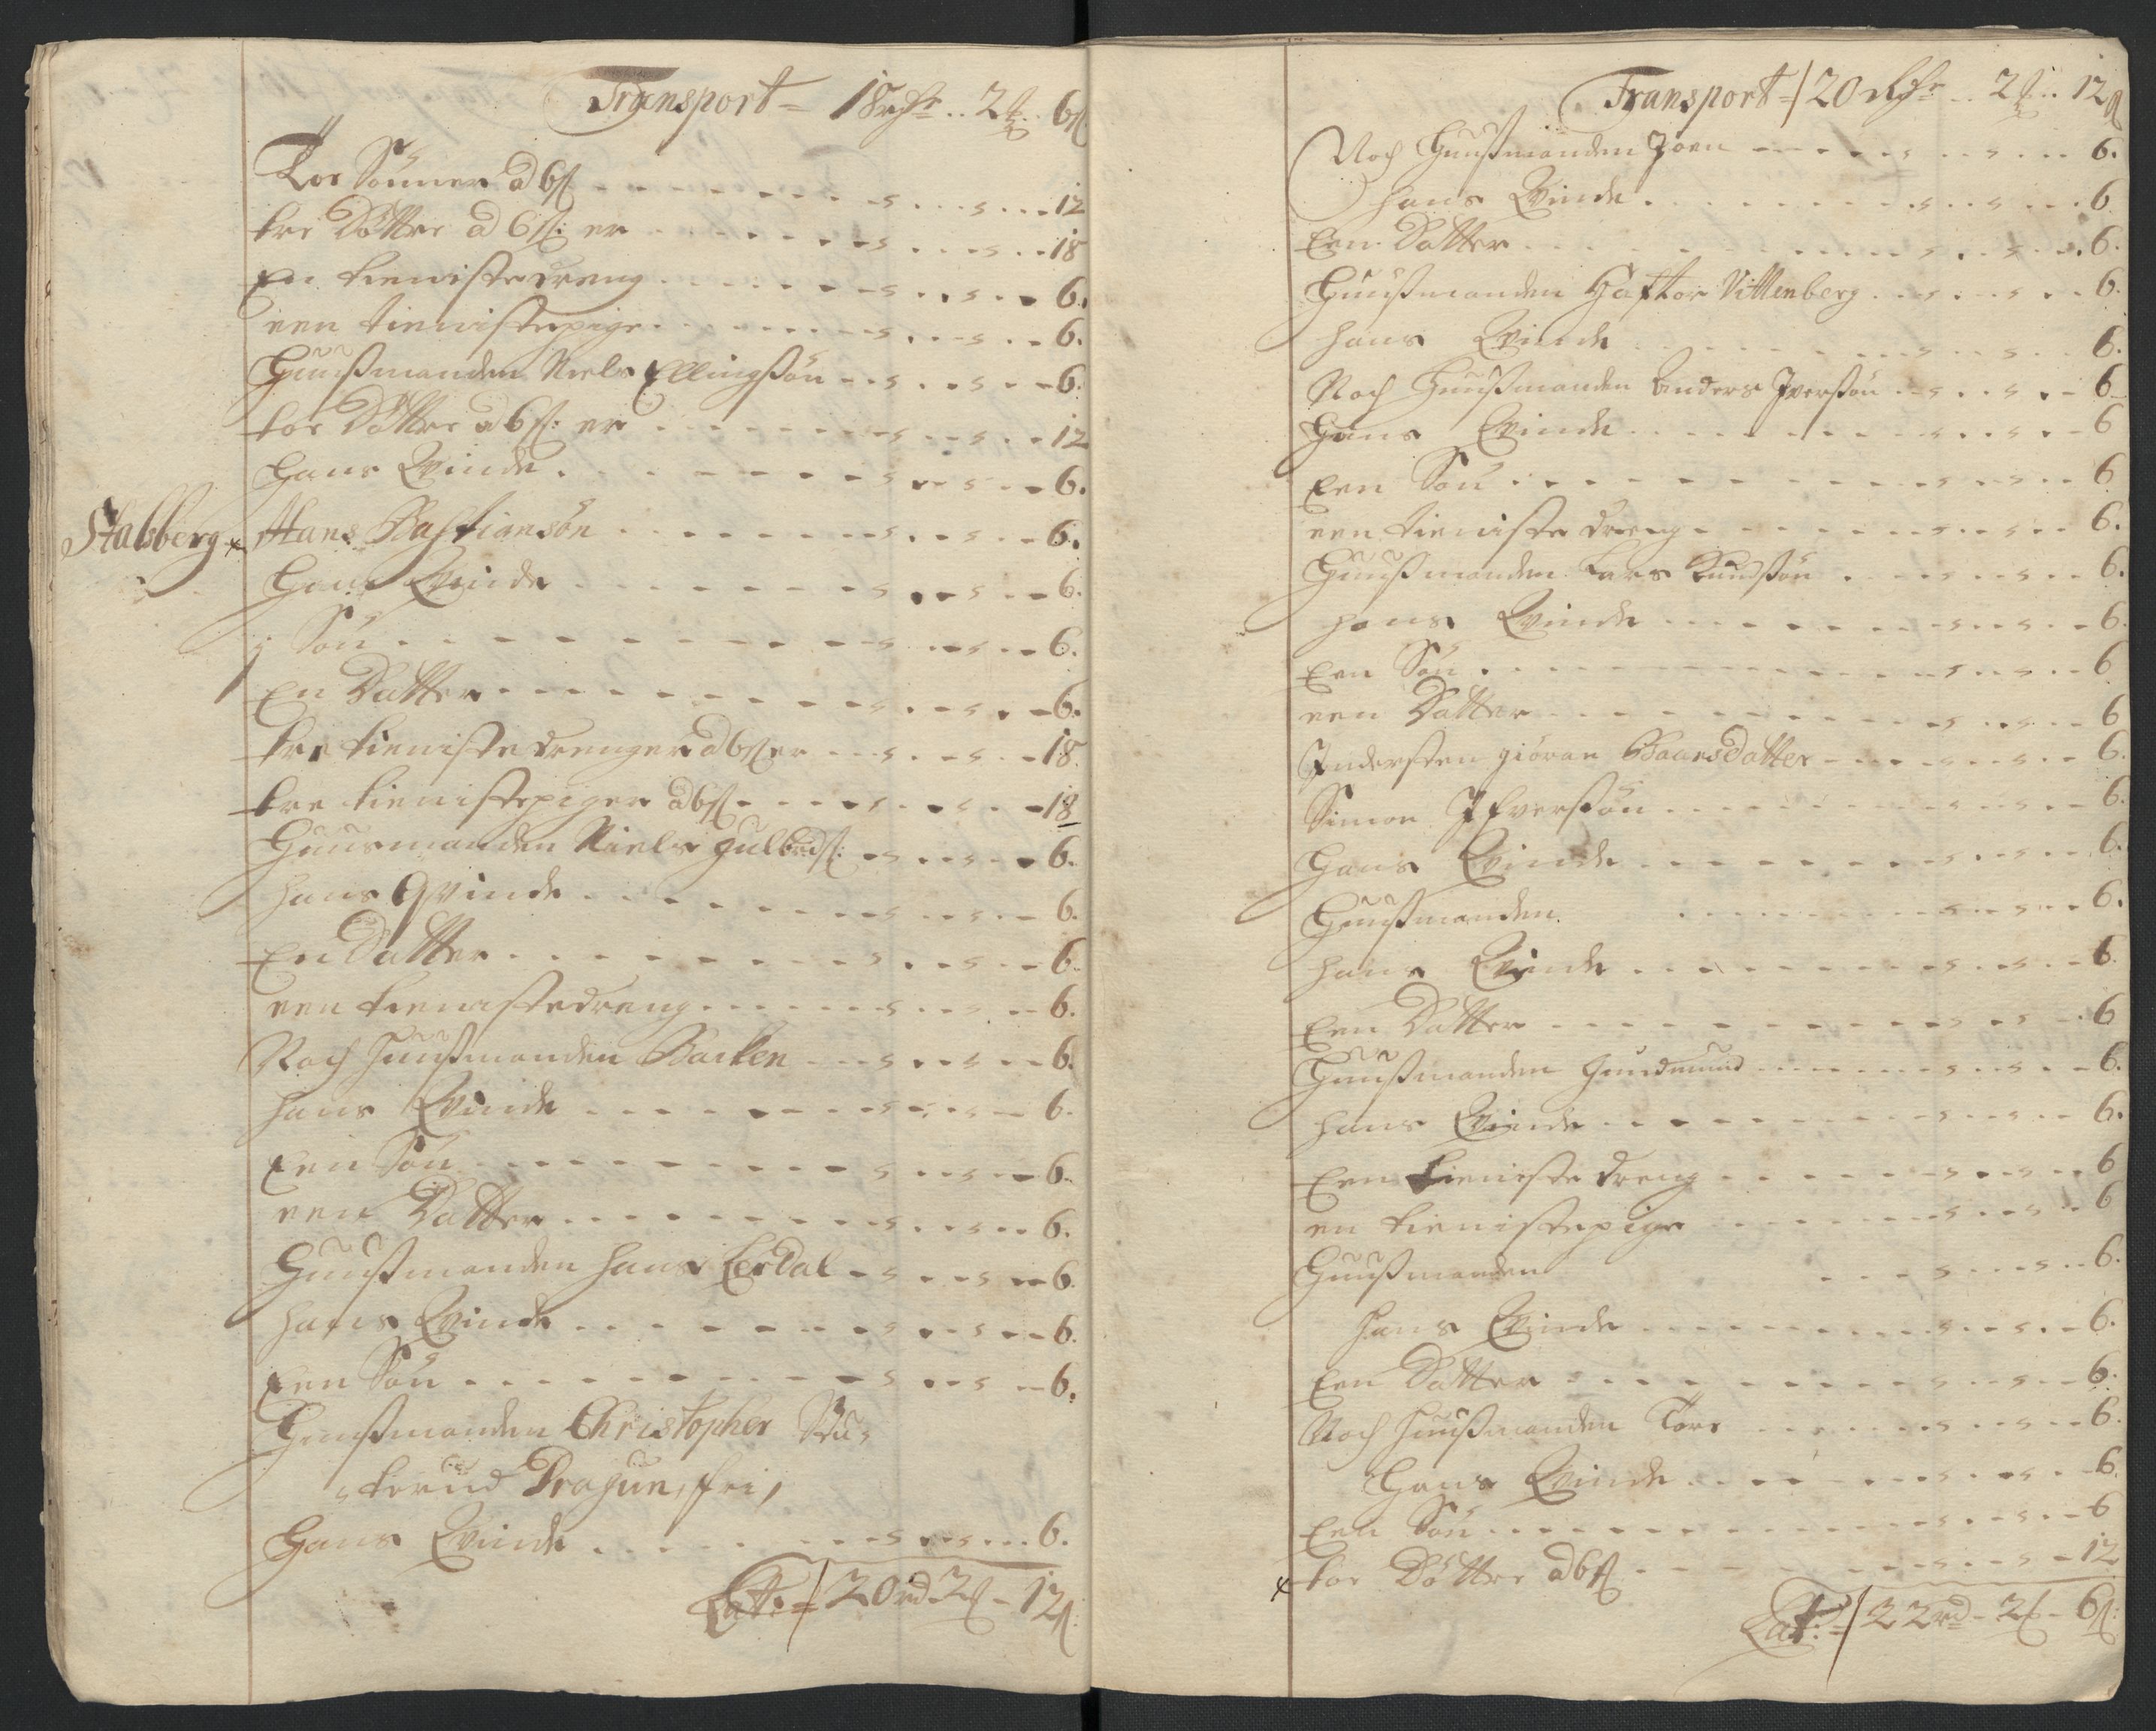 Transport = 18 rdr .. 2 ₰ .. 6 ß
Toe Sönner a 6 ß - - - 12
tre Döttre a 6 ß: er - - - 18
En tienistedreng - - - 6.
een tienistepige - - - 6.
Huußmanden Niels Ellingßøn - - - 6.
toe Döttre a 6 ß: er - - - 12
Hans Qvinde - - - 6.
Stabberg Hans Bastiansøn - - - 6.
Hans Qvinde - - - 6.
1 Søn - - - 6.
En Datter - - - 6.
tre tieniste drenger a 6 ß er - - - 18.
tre tienistepiger a 6 ß - - - 18
Huusmanden Niels Gulbrdß: - - - 6.
hans Qvinde - - - 6.
En Datter - - - 6.
een tienistedreng - - - 6.
Noch Huußmanden Backen - - - 6.
hans Qvinde - - - 6.
Een Søn - - - 6.
een Datter - - - 6.
Huußmanden Hans Eerdal - - - 6.
hans Qvinde - - - 6.
Een Søn - - - 6.
Huußmanden Christopher
Dragun, fri,
Hans Qvinde - - - 6.
Lat: = 20 rd - 2 - 12 ß
Transport = 20 rdr .. 2 .. 12 ß
Noch Huußmanden Joen - - - 6.
hans Qvinde - - - 6
Een Datter - - - 6.
Huußmanden Haftor Vittenberg - - - 6.
hans Qvinde - - - 6.
Noch Huußmanden Anders Iverßøn - - - 6
Hans Qvinde - - - 6
Een Søn - - - 6
een tieniste dreng - - - 6.
Huußmanden Lars Knudßøn - - - 6.
hans Qvinde - - - 6.
Een Søn - - - 6
een Datter - - - 6
Indersten Giöran BaarsDatter - - - 6.
Simon Ifverßøn - - - 6.
Hans Qvinde - - - 6.
Huußmanden. - - - 6.
hans Qvinde - - - 6.
Een Datter - - - 6
Huußmanden Gundmund - - - 6.
hans Qvinde - - - 6.
Een tieniste dreng - - - 6
en tienistepige - - - 6
Huußmanden - - - 6.
hans Qvinde - - - 6.
Een Datter - - - 6.
Noch Huußmanden Tore - - - 6.
Hans Qvinde - - - 6.
Een Søn - - - 6
toe Döttre a 6 ß - - - 12
Lat: = 22 rd - 2 - 6 ß